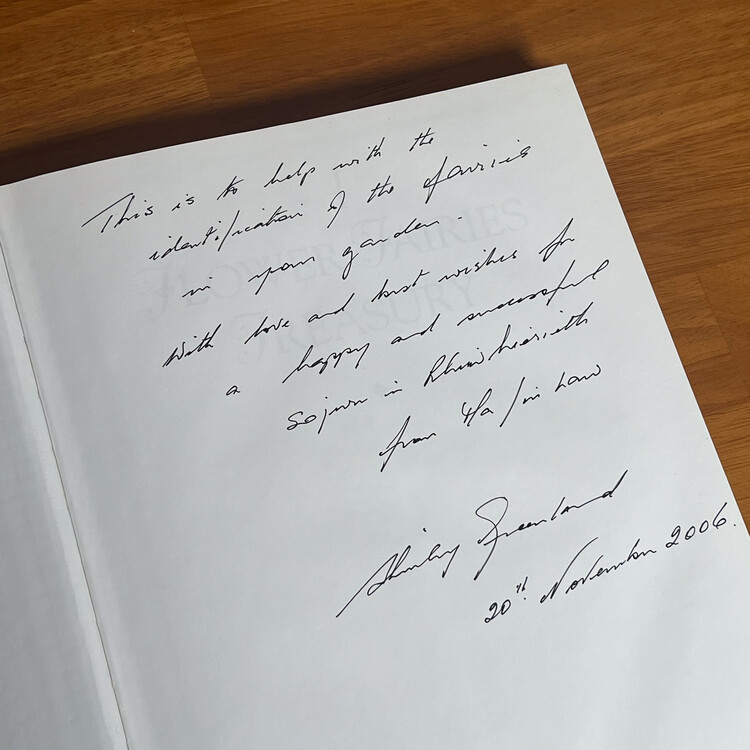 This is to help with the
identification of the fairies
in your garden.
With love and best wishes for
a happy and successful
sojurn in
from
Shirley Greenland
20th November 2006.
FLOWER FAIRIES
TREASURY